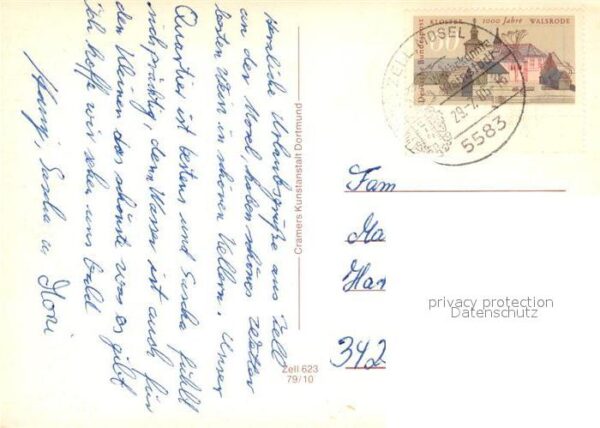 Herzliche Urlaubsgrüße aus Zell
an der Mosel, haben schönes Wetter
testen Wein in schönen Kellern. Unser
Quartier ist bestens und Sascha fühlt
sich prächtig, denn Wasser ist auch für
den Kleinen das schönste was es gibt
ich hoffe wir sehen uns bald
Sascha u.
Cramers Kunstanstalt Dortmund
Zell 623
79/10
KLOSTER 1000 Jahre WALSRODE
Deutsche Bundespost
60
ZELL, MOSEL
29.-7.86
5583
Fam
Ma
Han
342
privacy protection
Datenschutz